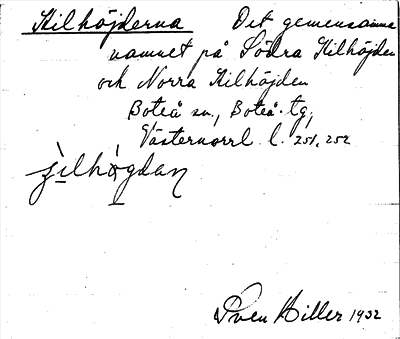 Kilhöjderna Det gemensamma
namnet på Södra Kilhöjden
och Norra Kilhöjden
Boteå sn., Boteå tg,
Västernorrl. l. 251, 252
Sven Hiller 1932